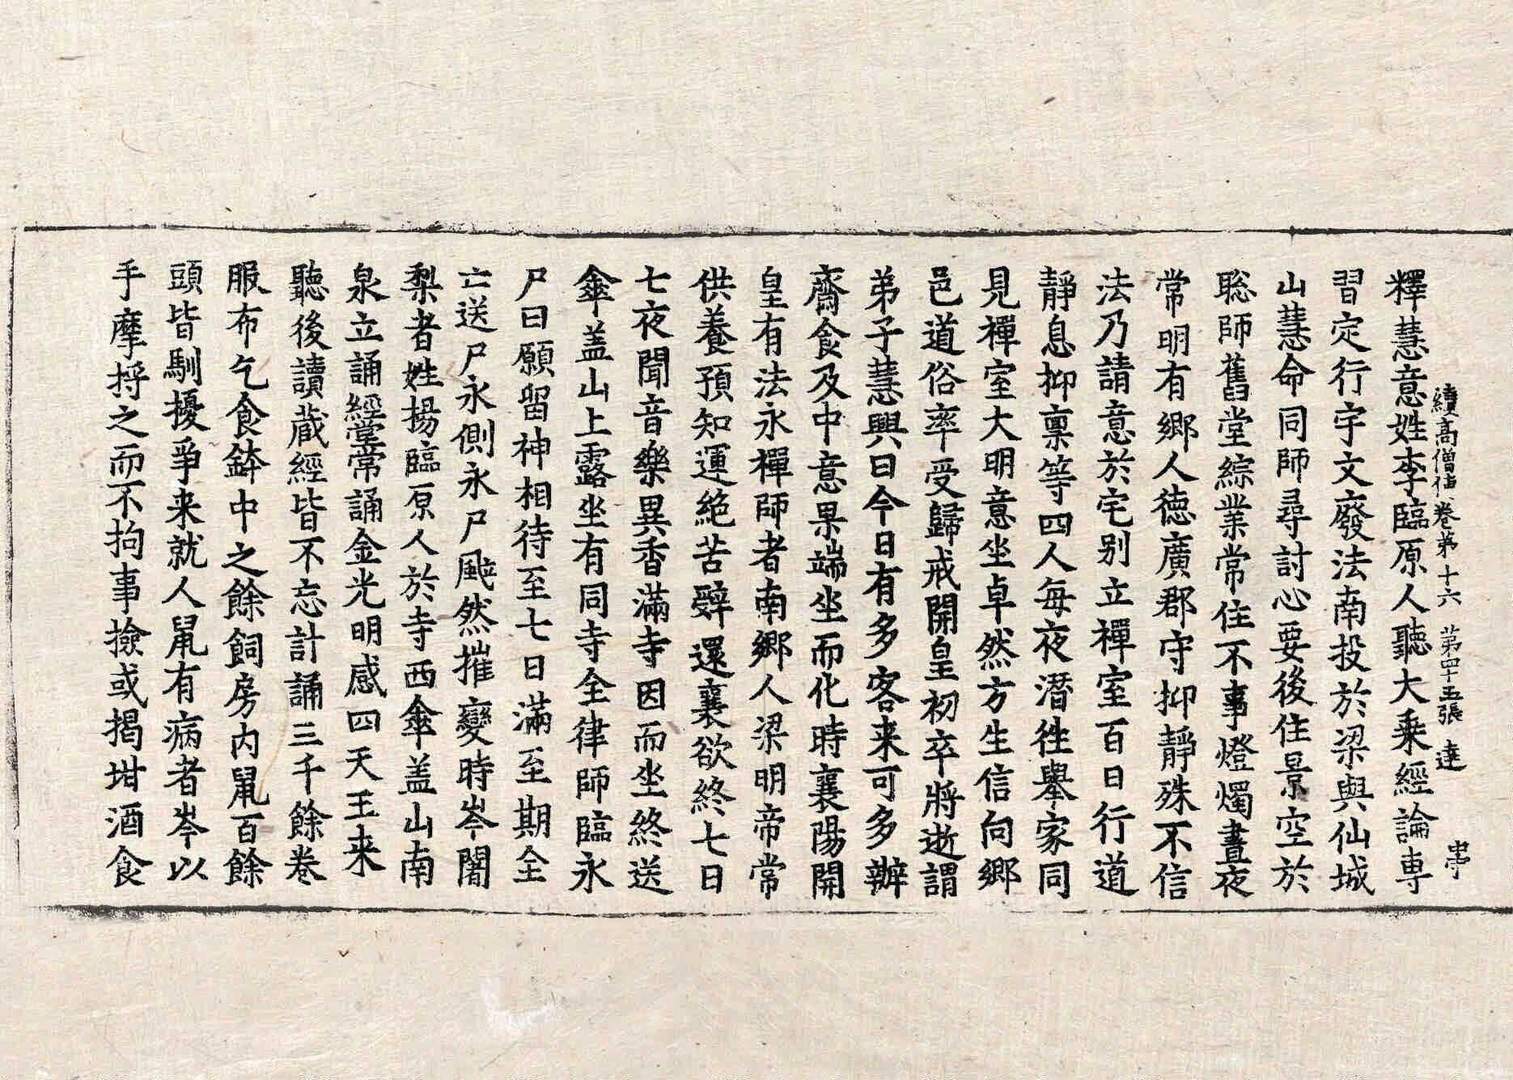 釋慧意姓李臨原人聽大乘經論專
續高僧傳卷第十六　第四十五張　達
習定行宇文廢法南投於梁與仙城
山慧命同師尋討心要後住景空於
聡師舊堂綜業常住不事燈燭晝夜
常明有郷人德廣郡守抑靜殊不信
法乃請意於宅别立禪室百日行道
靜息抑稟等四人每夜潛徃舉家同
見禪室大明意坐卓然方生信向郷
邑道俗率受歸戒開皇初卒將逝謂
弟子慧興曰今日有多客来可多辦
齋食及中意果端坐而化時襄陽開
皇有法永禪師者南郷人梁明帝常
供養預知運絶苦辤還襄欲終七日
七夜聞音樂異香滿寺因而坐終送
傘盖山上露坐有同寺全律師臨永
尸曰願留神相待至七日滿至期全
亡送尸永側永尸颰然摧變時岑闍
梨者姓揚臨原人於寺西傘盖山南
泉立誦經堂常誦金光明感四天王来
聽後讀蔵經皆不忘計誦三千餘卷
服布乞食鉢中之餘飼房内鼠百餘
頭皆馴擾爭来就人鼠有病者岑以
手摩捋之而不拘事撿或揭坩酒食